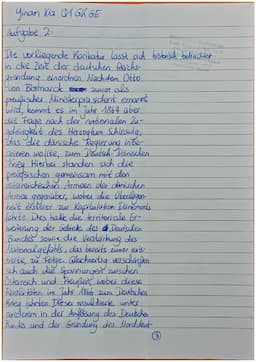 Yinan Xia Q1 GK GE
Aufgabe 2:
Die vorliegende Karikatur lässt sich historisch betrachtet
in die Zeit der deutschen Reichs-
gründung einordnen. Nachdem Otto
von Bismarck zuvor als
preußischer Ministerpräsident ernannt
wird, kommt es im Jahr 1864 über
die Frage nach der nationalen Zu-
gehörigkeit des Herzogtum Schleswig,
das die dänische Regierung inte-
grieren wollte, zum Deutsch-Dänischen
Krieg. Hierbei standen sich die
preußischen gemeinsam mit den
österreichischen Armeen der dänischen
Armee gegenüber, wobei die Überlegen-
heit ersterer zur Kapitulation Dänemarks
führte. Dies hatte die territoriale Er-
weiterung der Gebiete des Deutschen
Bundes sowie die Verstärkung des
Nationalgefühls, das bereits zuvor exis-
tierte, zu Folge. Gleichzeitig verschärften
sich auch die Spannungen zwischen
Österreich und Preußen, wobei diese
Rivalitäten im Jahr 1866 zum Deutschen
Krieg führten. Dieser resultierte unter
anderem in der Auflösung des Deutschen
Bunds und der Gründung des Norddeut-
3